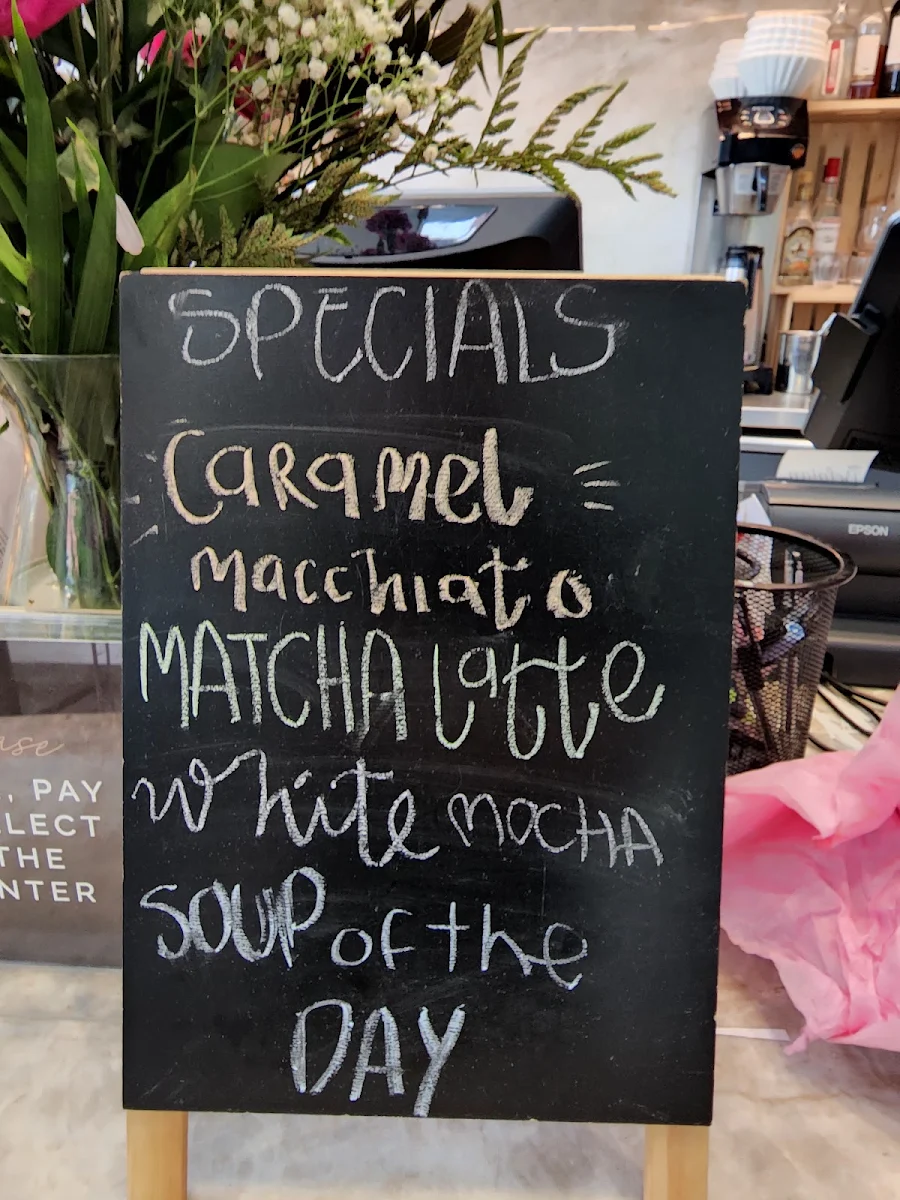 SPECIALS
CARAMEL
macchiato
MATCHA Latte
White MOCHA
SOUP of the
DAY
EPSON
PAY
THE